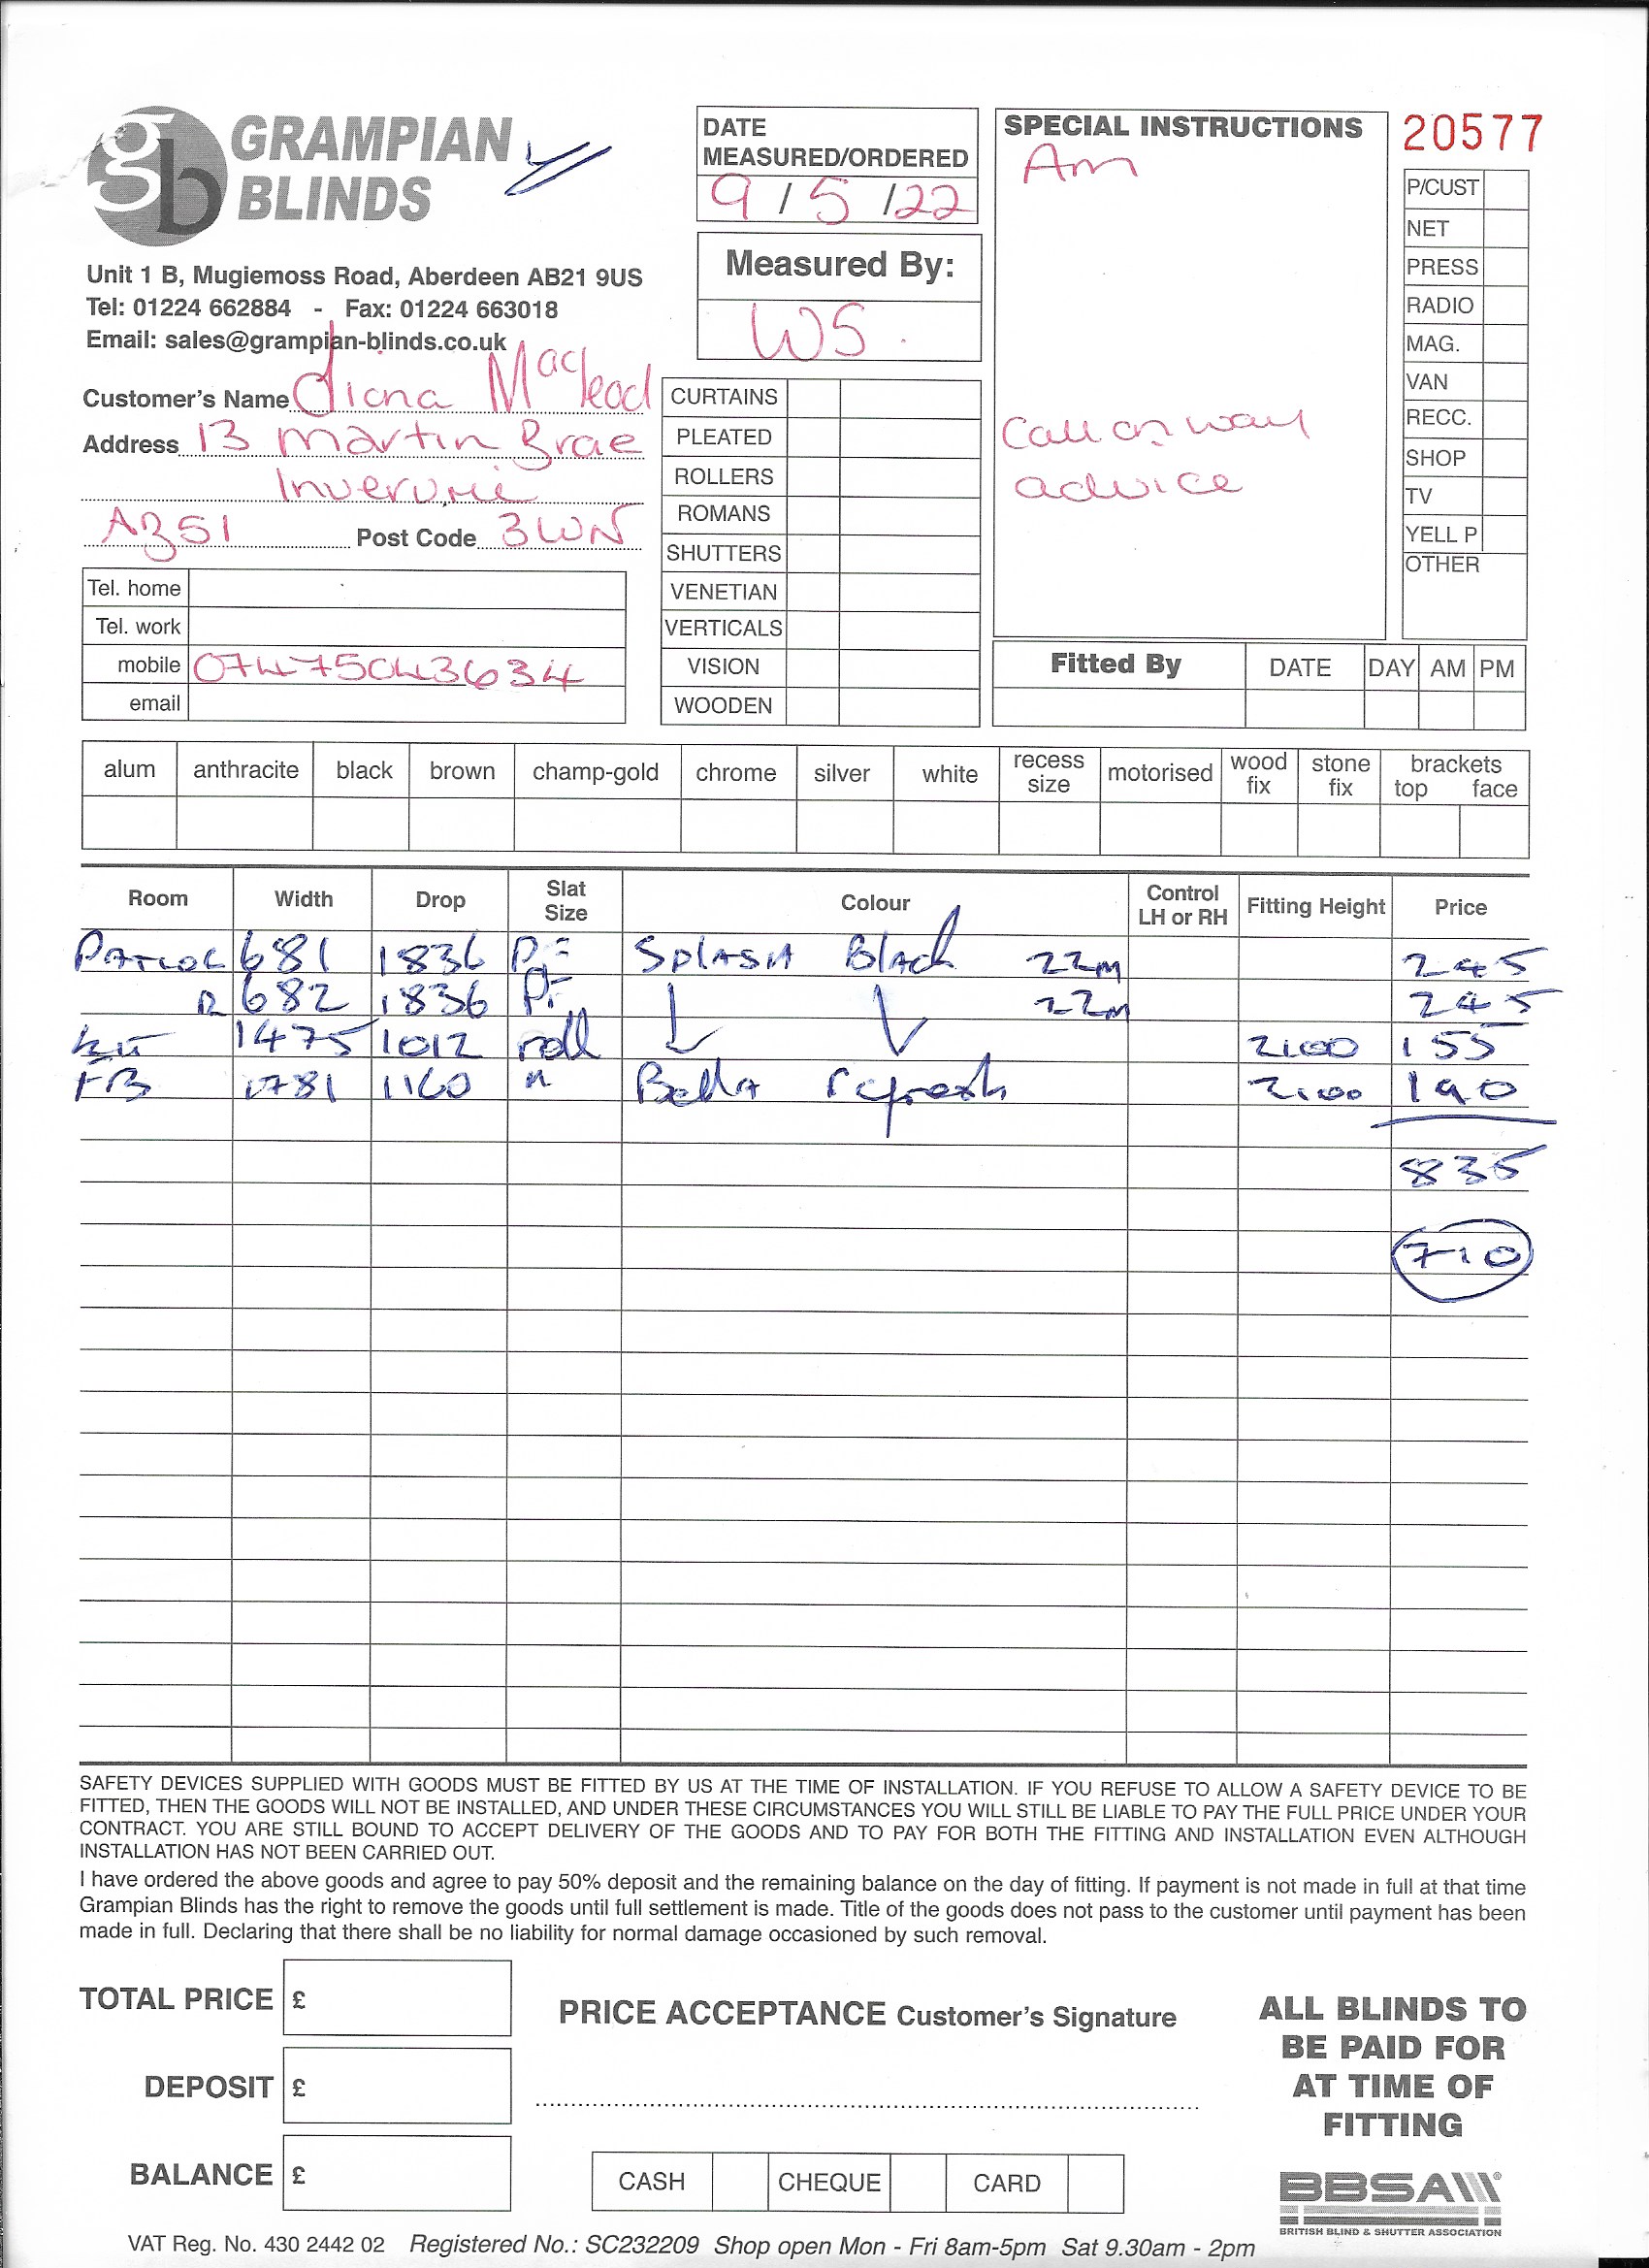 GRAMPIAN
BLINDS
Unit 1 B, Mugiemoss Road, Aberdeen AB21 9US
Tel: 01224 662884 - Fax: 01224 663018
Email: sales@grampian-blinds.co.uk
Customer's Name Diana Macleod
Address 13 Martin Brae
Inverurie
AB51 Post Code 3WN
Tel. home
Tel. work
mobile 07475043634
email
DATE
MEASURED/ORDERED
9/5/22
Measured By:
WS.
CURTAINS
PLEATED
ROLLERS
ROMANS
SHUTTERS
VENETIAN
VERTICALS
VISION
WOODEN
SPECIAL INSTRUCTIONS
Am
Call on way
advice
20577
P/CUST
NET
PRESS
RADIO
MAG.
VAN
RECC.
SHOP
TV
YELL P
OTHER
Fitted By DATE DAY AM PM
alum anthracite black brown champ-gold chrome silver white recess size motorised wood fix stone fix brackets top face
Room Width Drop Slat Size Colour Control LH or RH Fitting Height Price
681 1836 PF SPLASH Black 22m 245
R 682 1836 PF 22m 245
Kit 1475 1012 roll 2100 155
FB 1781 1160 " Bella refresh 2100 190
835
710
SAFETY DEVICES SUPPLIED WITH GOODS MUST BE FITTED BY US AT THE TIME OF INSTALLATION. IF YOU REFUSE TO ALLOW A SAFETY DEVICE TO BE
FITTED, THEN THE GOODS WILL NOT BE INSTALLED, AND UNDER THESE CIRCUMSTANCES YOU WILL STILL BE LIABLE TO PAY THE FULL PRICE UNDER YOUR
CONTRACT. YOU ARE STILL BOUND TO ACCEPT DELIVERY OF THE GOODS AND TO PAY FOR BOTH THE FITTING AND INSTALLATION EVEN ALTHOUGH
INSTALLATION HAS NOT BEEN CARRIED OUT.
I have ordered the above goods and agree to pay 50% deposit and the remaining balance on the day of fitting. If payment is not made in full at that time
Grampian Blinds has the right to remove the goods until full settlement is made. Title of the goods does not pass to the customer until payment has been
made in full. Declaring that there shall be no liability for normal damage occasioned by such removal.
TOTAL PRICE £
DEPOSIT £
BALANCE £
PRICE ACCEPTANCE Customer's Signature
CASH CHEQUE CARD
ALL BLINDS TO
BE PAID FOR
AT TIME OF
FITTING
BBSA
BRITISH BLIND & SHUTTER ASSOCIATION
VAT Reg. No. 430 2442 02 Registered No.: SC232209 Shop open Mon - Fri 8am-5pm Sat 9.30am - 2pm